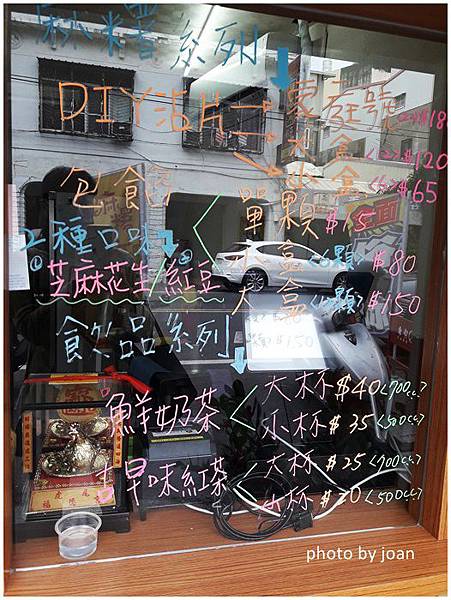 麻糬系列
DIY沾片
家庭號 $18
大盒 $120
小盒 $65
包餡
單顆 $15
2種口味
小盒<6顆> $80
①芝麻花生/②紅豆
大盒 $150
飲品系列
鮮奶茶
大杯 $40<700cc>
小杯 $35<500cc>
古早味紅茶
大杯 $25<700cc>
小杯 $20<500cc>
photo by joan